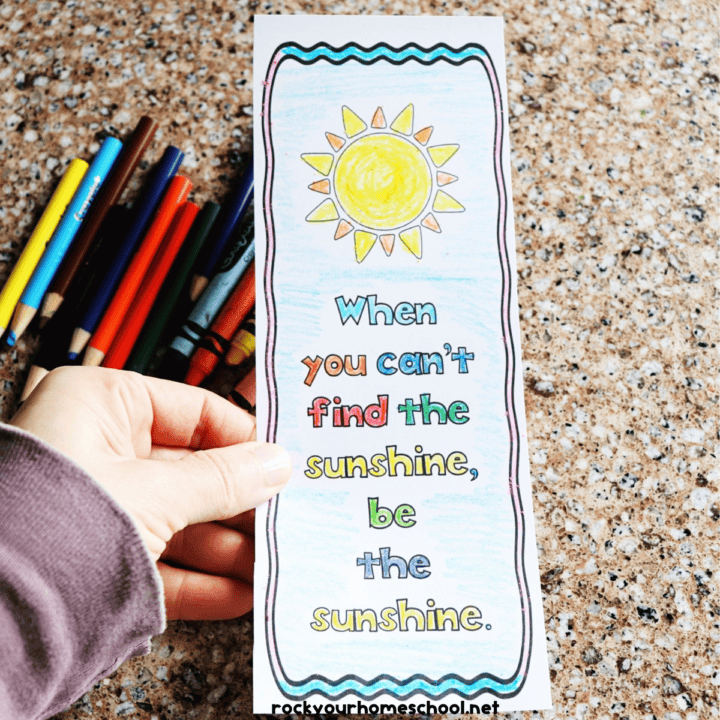 When
you can't
find the
sunshine,
be
the
sunshine.
rockyourhomeschool.net